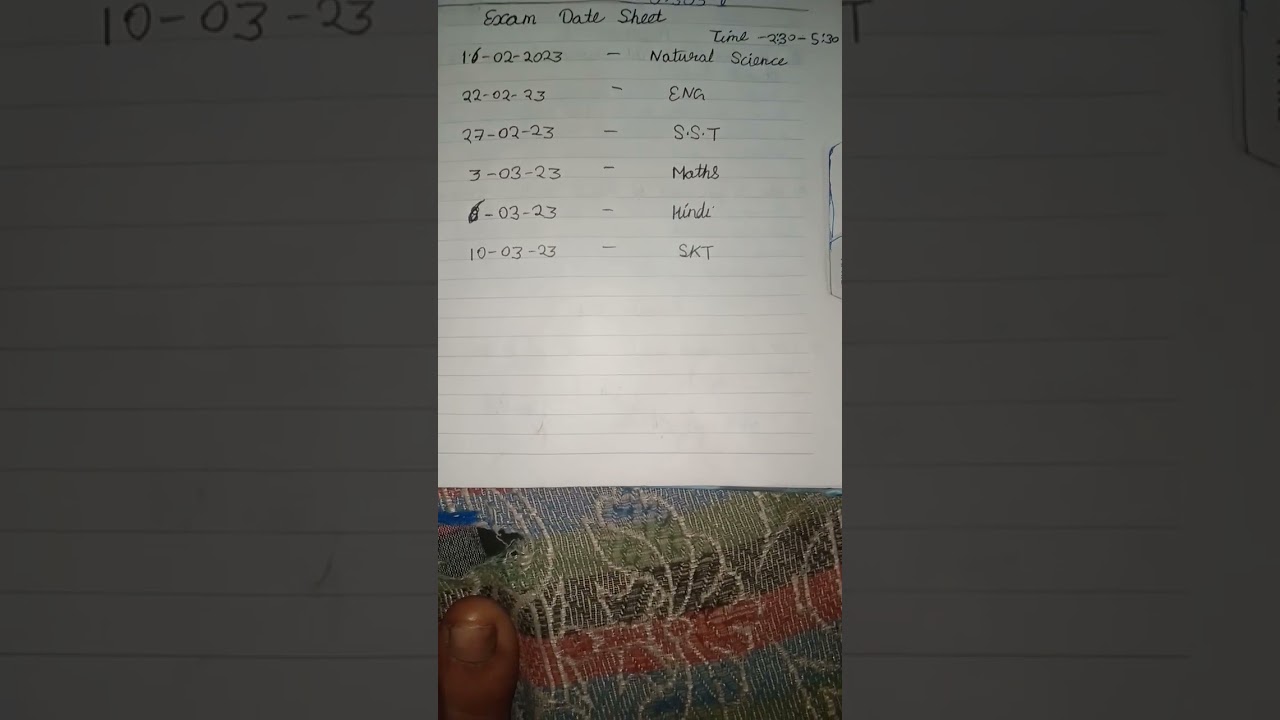 Exam Date Sheet
Time - 2:30 - 5:30
16-02-2023 - Natural Science
22-02-23 - ENG
27-02-23 - S.S.T
3-03-23 - Maths
6-03-23 - Hindi
10-03-23 - SKT